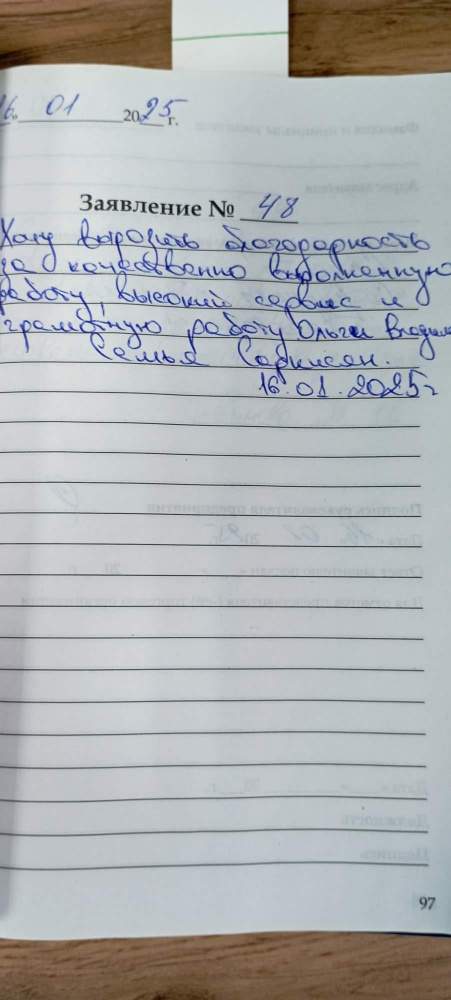 16. 01 2025 г.
Заявление № 48
Хочу выразить благодарность
за качественно выполненную
работу, высокий сервис и
грамотную работу Ольги
Семья Саркисян.
16.01.2025г
97